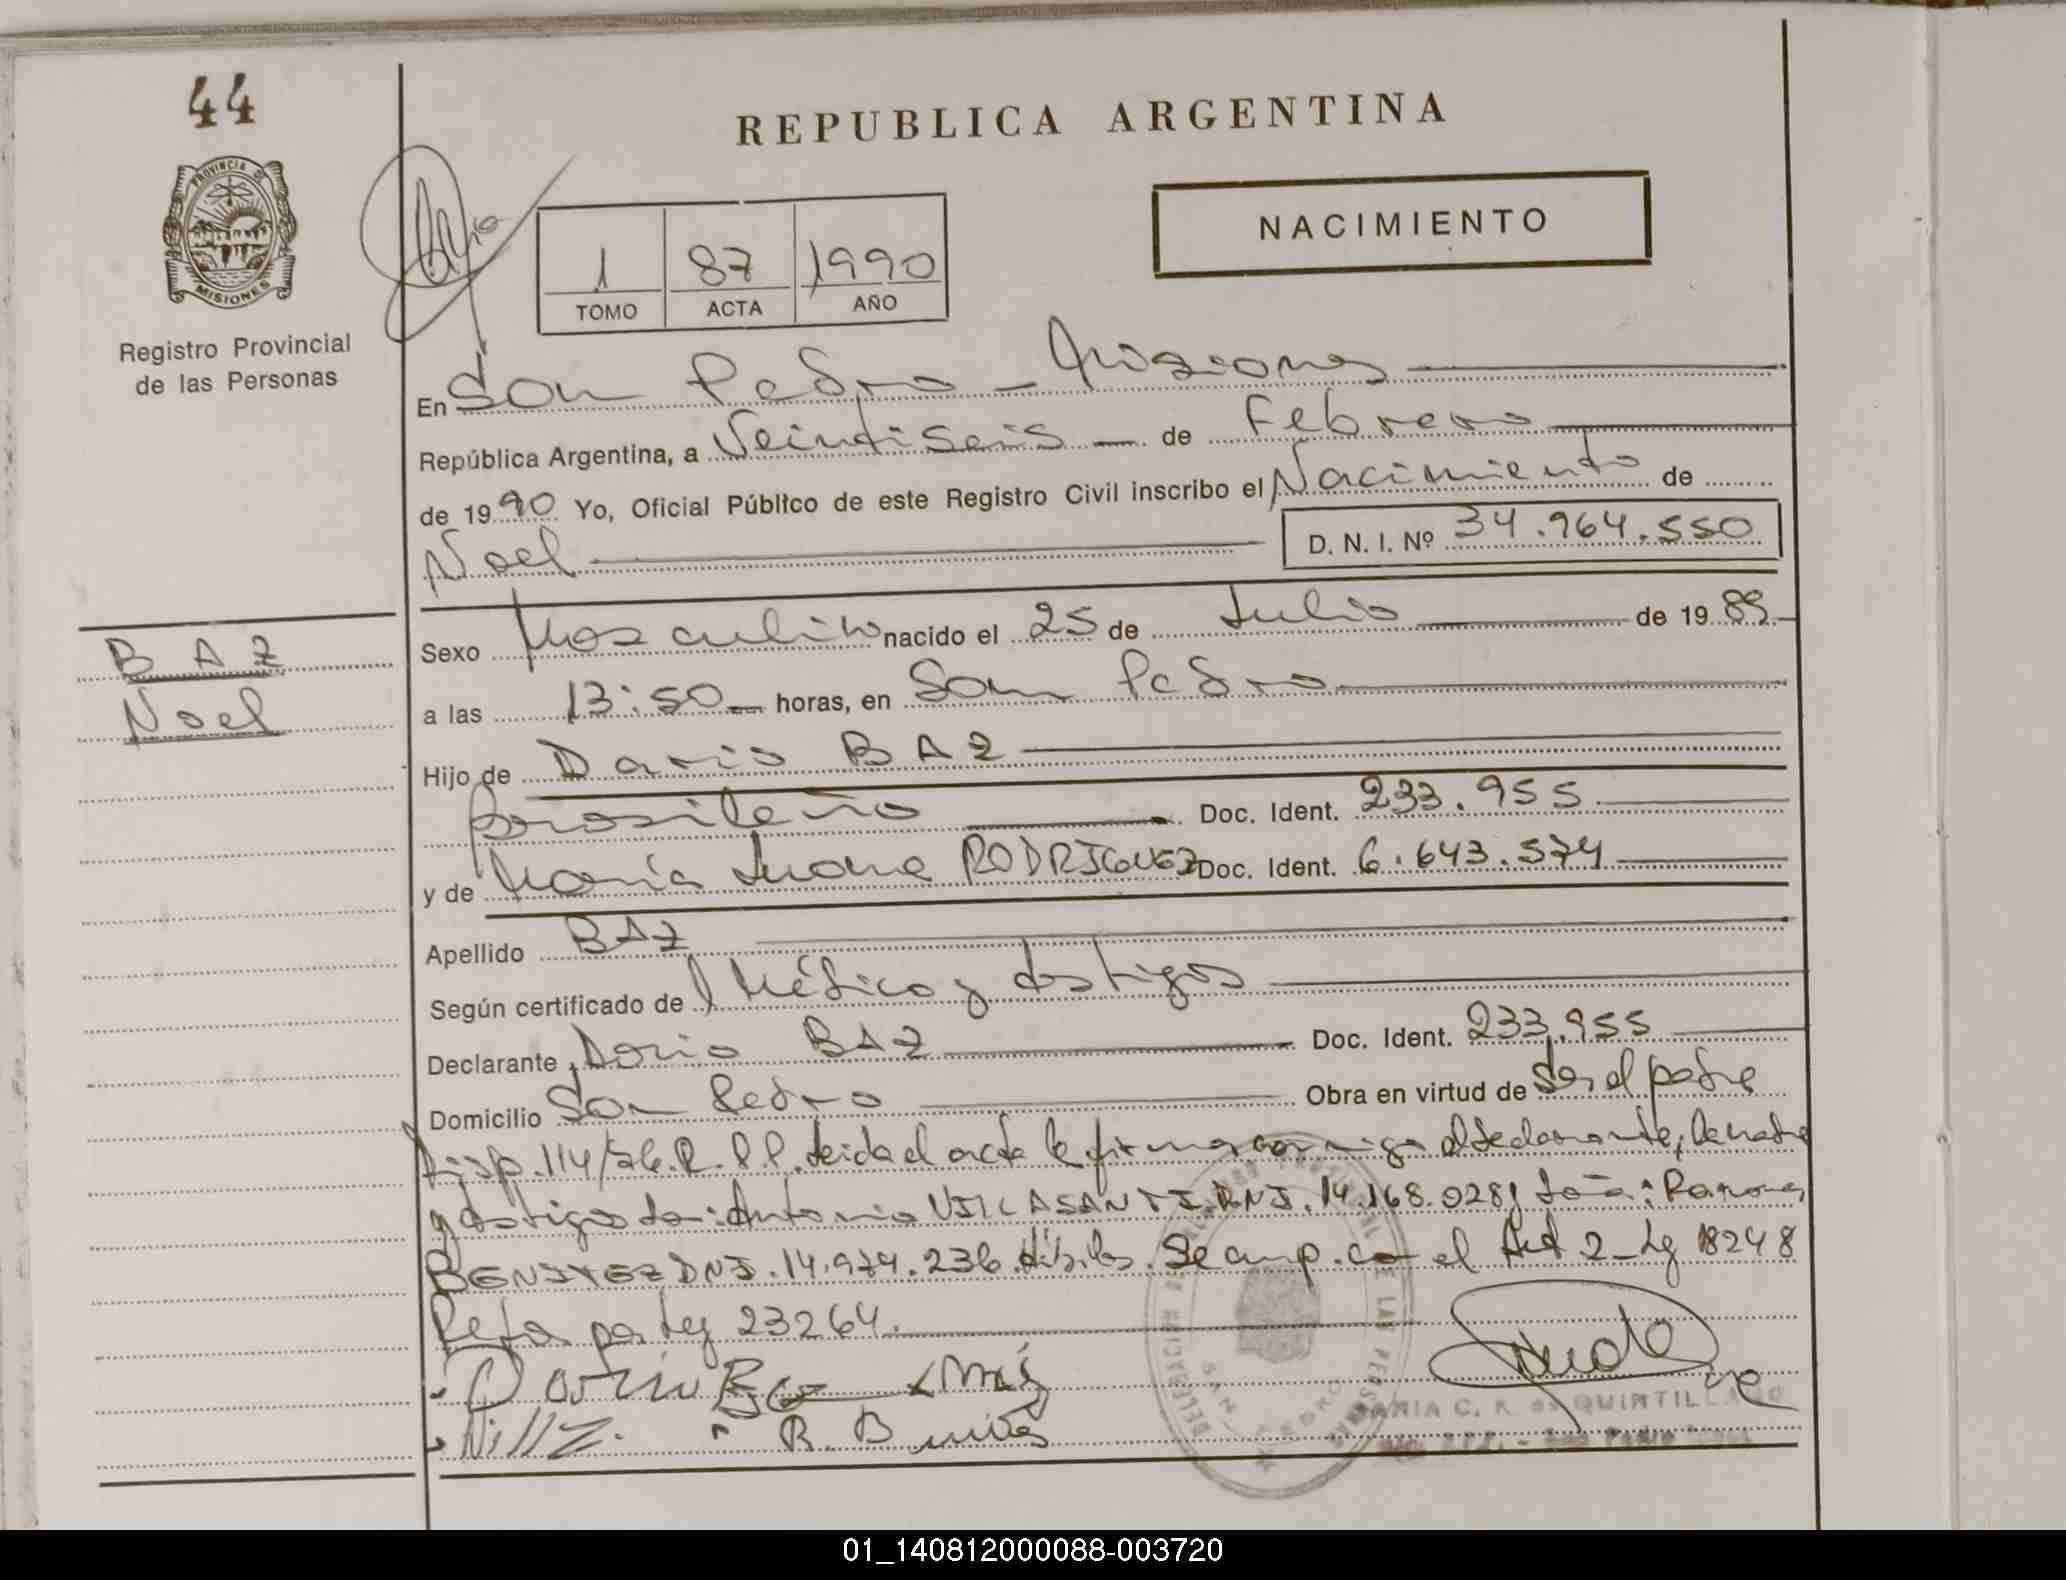 44
REPUBLICA ARGENTINA
PROVINCIA DE
MISIONES
Registro Provincial
de las Personas
1 87 1990
TOMO ACTA AÑO
NACIMIENTO
En San Pedro - Misiones
República Argentina, a Veintiseis de Febrero
de 1990 Yo, Oficial Público de este Registro Civil inscribo el Nacimiento de
Noel D. N. I. Nº 34.964.550
BAZ
Noel
Sexo Masculino nacido el 25 de Julio de 1989
a las 13:50 horas, en San Pedro
Hijo de Dario BAZ
Brasileño Doc. Ident. 233.955
y de María Juana RODRIGUEZ Doc. Ident. 6.643.574
Apellido BAZ
Según certificado de Médico y testigos
Declarante Dario BAZ Doc. Ident. 233.955
Domicilio San Pedro Obra en virtud de Ser el padre
Disp. 114/ R.P.P. Leida el acta la firma conmigo el declarante, la madre
y testigos Antonio VILLASANTI DNI. 14.168.028 y Ramona
BENITEZ DNI. 14.974.236 . Se cump. con el Art 2 - Ley 18248
por Ley 23264.
R. B
MARIA C. R. de QUINTILLANO
San Pedro
01_140812000088-003720